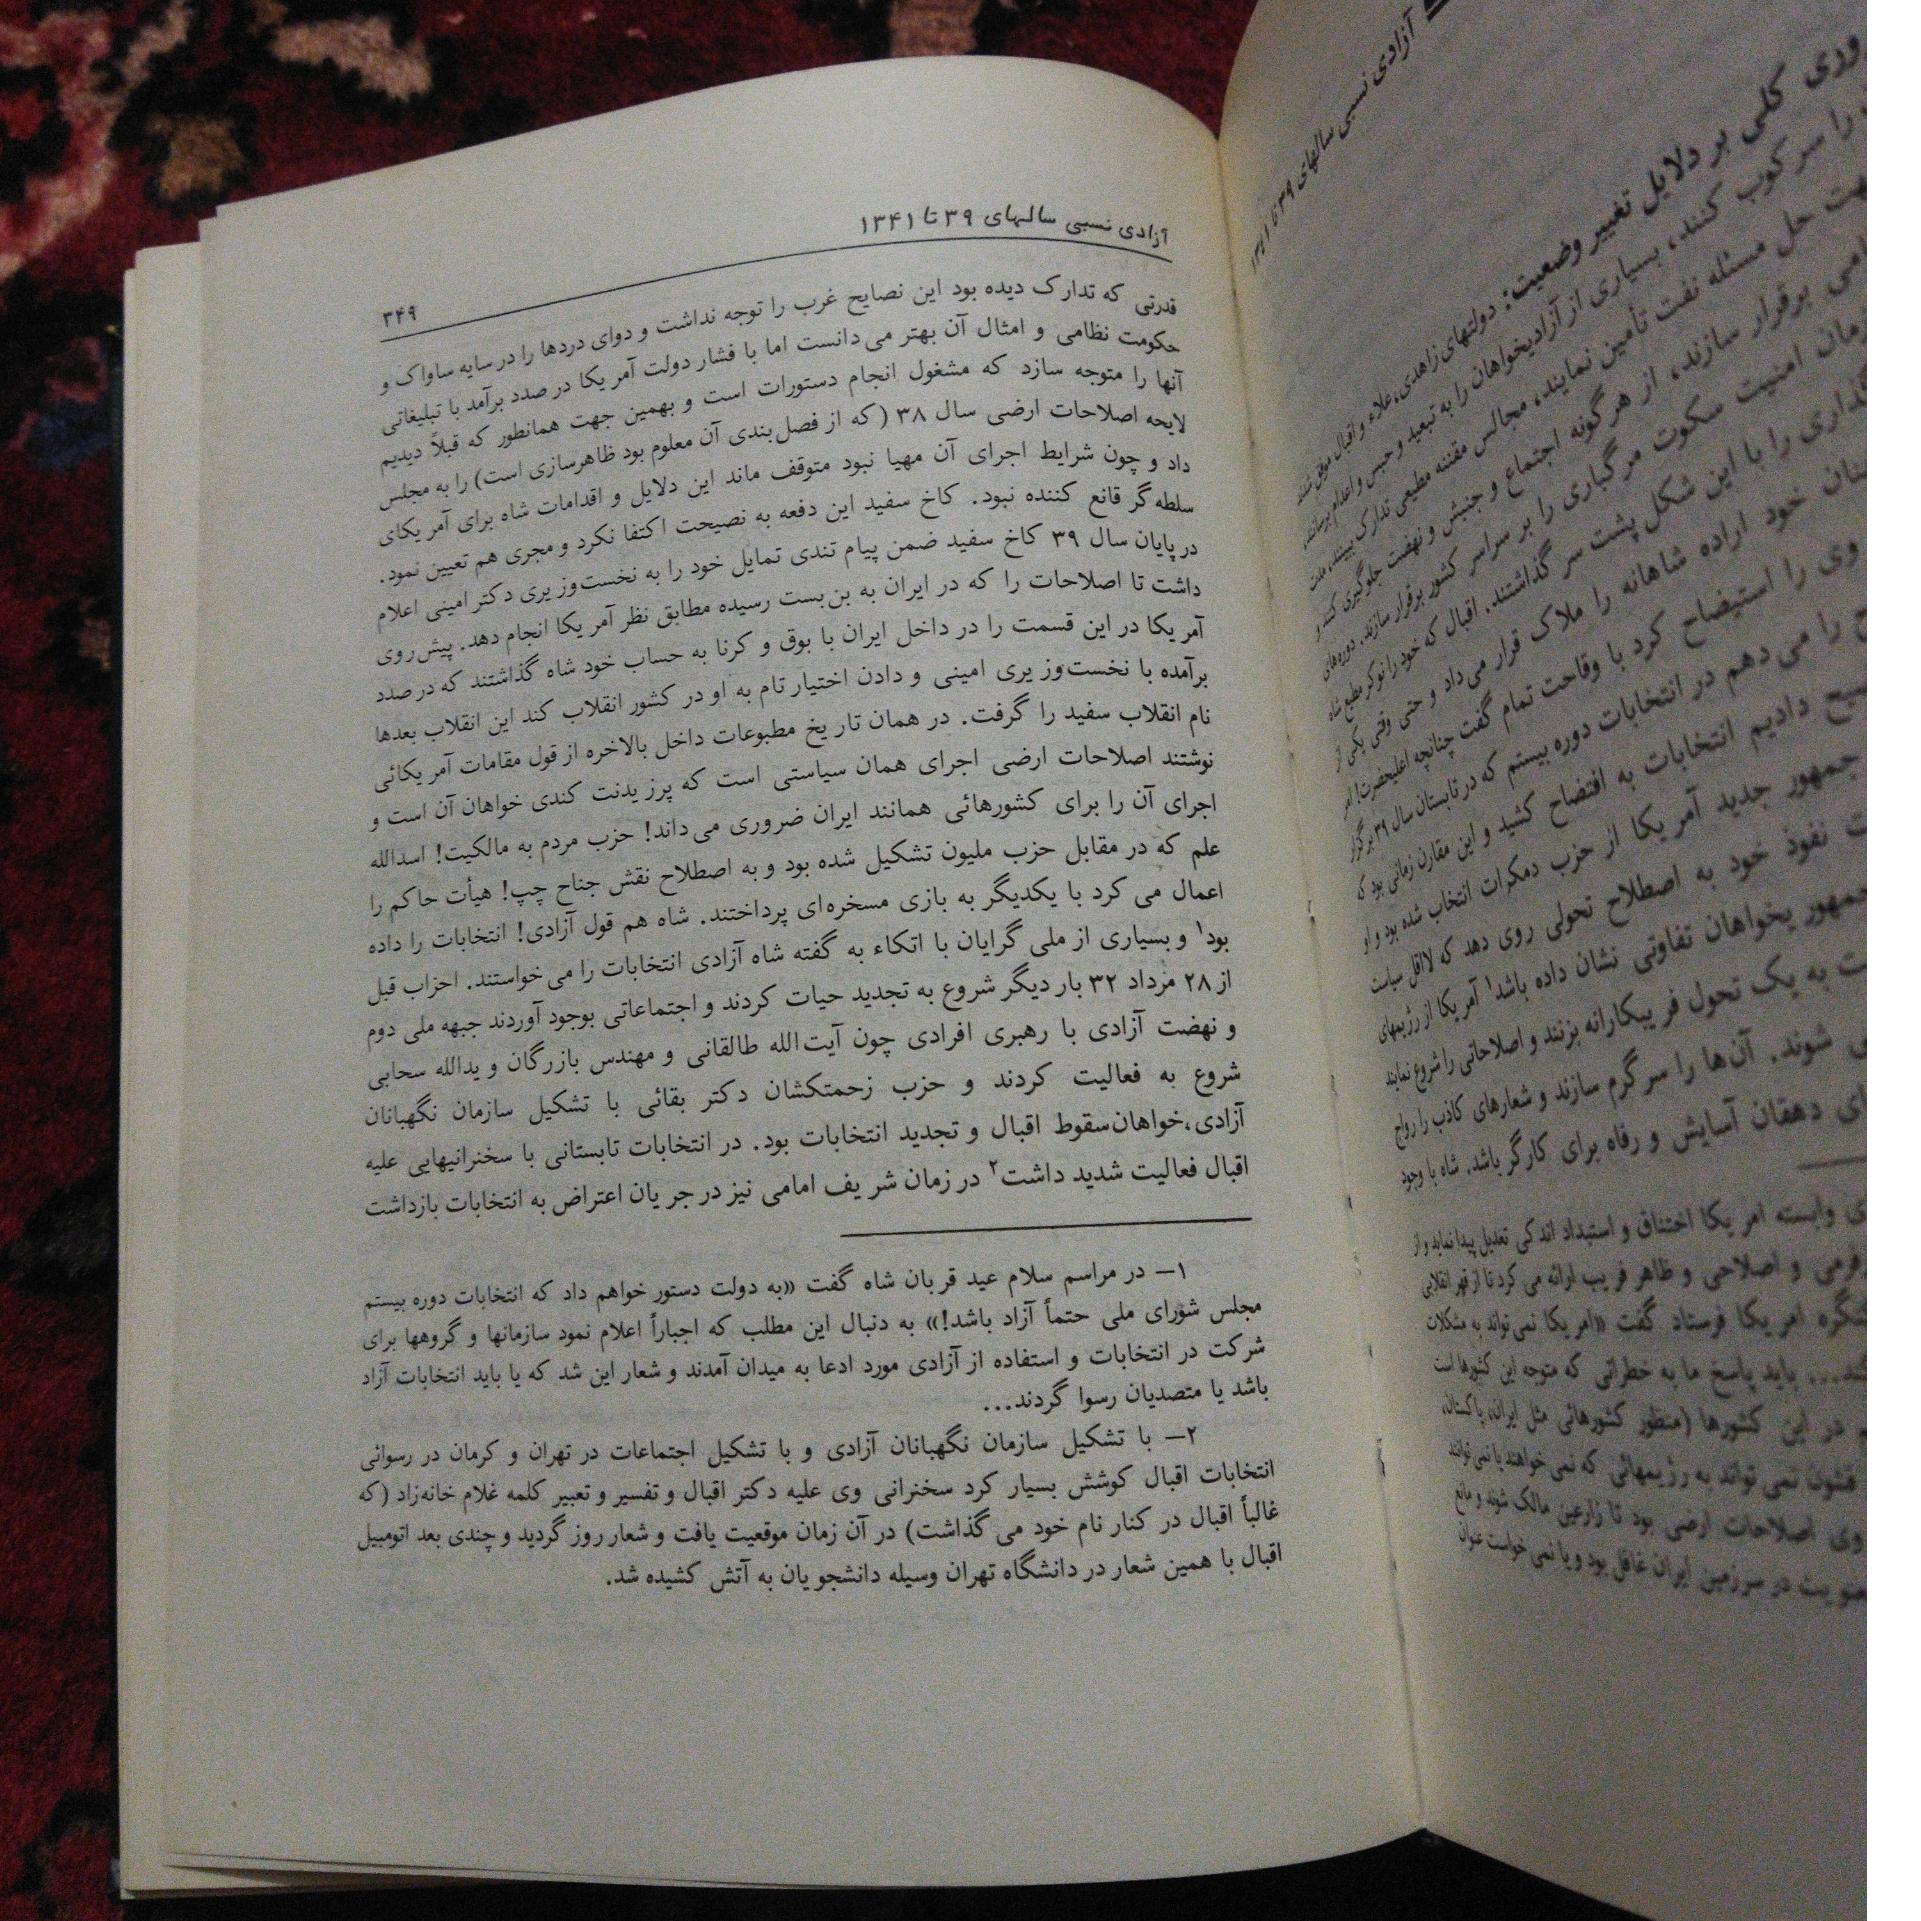 آزادی نسبی سالهای ۳۹ تا ۱۳۴۱
۳۴۹
قدرتی که تدارک دیده بود این نصایح غرب را توجه نداشت و دوای دردها را در سایه ساواک و
حکومت نظامی و امثال آن بهتر می‌دانست اما با فشار دولت آمریکا در صدد برآمد با تبلیغاتی
آنها را متوجه سازد که مشغول انجام دستورات است و بهمین جهت همانطور که قبلاً دیدیم
لایحه اصلاحات ارضی سال ۳۸ (که از فصل‌بندی آن معلوم بود ظاهرسازی است) را به مجلس
داد و چون شرایط اجرای آن مهیا نبود متوقف ماند این دلایل و اقدامات شاه برای آمریکای
سلطه‌گر قانع کننده نبود. کاخ سفید این دفعه به نصیحت اکتفا نکرد و مجری هم تعیین نمود.
در پایان سال ۳۹ کاخ سفید ضمن پیام تندی تمایل خود را به نخست‌وزیری دکتر امینی اعلام
داشت تا اصلاحات را که در ایران به بن‌بست رسیده مطابق نظر آمریکا انجام دهد. پیش‌روی
آمریکا در این قسمت را در داخل ایران با بوق و کرنا به حساب خود شاه گذاشتند که در صدد
برآمده با نخست‌وزیری امینی و دادن اختیار تام به او در کشور انقلاب کند این انقلاب بعدها
نام انقلاب سفید را گرفت. در همان تاریخ مطبوعات داخل بالاخره از قول مقامات آمریکائی
نوشتند اصلاحات ارضی اجرای همان سیاستی است که پرزیدنت کندی خواهان آن است و
اجرای آن را برای کشورهائی همانند ایران ضروری می‌داند! حزب مردم به مالکیت! اسدالله
علم که در مقابل حزب ملیون تشکیل شده بود و به اصطلاح نقش جناح چپ! هیأت حاکم را
اعمال می کرد با یکدیگر به بازی مسخره‌ای پرداختند. شاه هم قول آزادی! انتخابات را داده
بود۱ و بسیاری از ملی گرایان با اتکاء به گفته شاه آزادی انتخابات را می خواستند. احزاب قبل
از ۲۸ مرداد ۳۲ بار دیگر شروع به تجدید حیات کردند و اجتماعاتی بوجود آوردند جبهه ملی دوم
و نهضت آزادی با رهبری افرادی چون آیت‌الله طالقانی و مهندس بازرگان و یدالله سحابی
شروع به فعالیت کردند و حزب زحمتکشان دکتر بقائی با تشکیل سازمان نگهبانان
آزادی،خواهان‌سقوط اقبال و تجدید انتخابات بود. در انتخابات تابستانی با سخنرانیهایی علیه
اقبال فعالیت شدید داشت۲ در زمان شریف امامی نیز در جریان اعتراض به انتخابات بازداشت
۱— در مراسم سلام عید قربان شاه گفت «به دولت دستور خواهم داد که انتخابات دوره بیستم
مجلس شورای ملی حتماً آزاد باشد!» به دنبال این مطلب که اجباراً اعلام نمود سازمانها و گروهها برای
شرکت در انتخابات و استفاده از آزادی مورد ادعا به میدان آمدند و شعار این شد که یا باید انتخابات آزاد
باشد یا متصدیان رسوا گردند...
۲— با تشکیل سازمان نگهبانان آزادی و با تشکیل اجتماعات در تهران و کرمان در رسوائی
انتخابات اقبال کوشش بسیار کرد سخنرانی وی علیه دکتر اقبال و تفسیر و تعبیر کلمه غلام خانه‌زاد (که
غالباً اقبال در کنار نام خود می گذاشت) در آن زمان موقعیت یافت و شعار روز گردید و چندی بعد اتومبیل
اقبال با همین شعار در دانشگاه تهران وسیله دانشجویان به آتش کشیده شد.
آزادی نسبی سالهای ۳۹ تا ۱۳۴۱
کلی بر دلایل تغییر وضعیت: دولتهای زاهدی،علاء و اقبال موفق شدند
را سرکوب کنند، بسیاری از آزادیخواهان را به تبعید و حبس و اعدام برسانند،
حل مسئله نفت تأمین نمایند، مجالس مقننه مطیعی تدارک ببینند، ملت
برقرار سازند، از هرگونه اجتماع و جنبش و نهضت جلوگیری کنند و
امنیت سکوت مرگباری را بر سراسر کشور برقرار سازند. دوره‌های
را با این شکل پشت سر گذاشتند. اقبال که خود را نوکر مطیع شاه
خود اراده شاهانه را ملاک قرار می‌داد و حتی وقتی یکی از
وی را استیضاح کرد با وقاحت تمام گفت چنانچه اعلیحضرت! امر
را می دهم در انتخابات دوره بیستم که در تابستان سال ۳۹ برگزار
دادیم انتخابات به افتضاح کشید و این مقارن زمانی بود که
جمهور جدید آمریکا از حزب دمکرات انتخاب شده بود و او
نفوذ خود به اصطلاح تحولی روی دهد که لااقل سیاست
جمهوریخواهان تفاوتی نشان داده باشد۱ آمریکا از رژیمهای
به یک تحول فریبکارانه بزنند و اصلاحاتی را شروع نمایند
شوند. آن‌ها را سرگرم سازند و شعارهای کاذب را رواج
دهقان آسایش و رفاه برای کارگر باشد. شاه با وجود
وابسته امریکا اختناق و استبداد اندکی تعدیل پیدا نماید و از
و اصلاحی و ظاهر فریب ارائه می کرد تا از قهر انقلابی
امریکا فرستاد گفت «امریکا نمی تواند به مشکلات
باید پاسخ ما به خطراتی که متوجه این کشورها است
در این کشورها (منظور کشورهائی مثل ایران، پاکستان،
قشون نمی تواند به رژیمهائی که نمی خواهند یا نمی توانند
اصلاحات ارضی بود تا زارعین مالک شوند و مانع
در سرزمین ایران غافل بود و یا نمی خواست عنوان